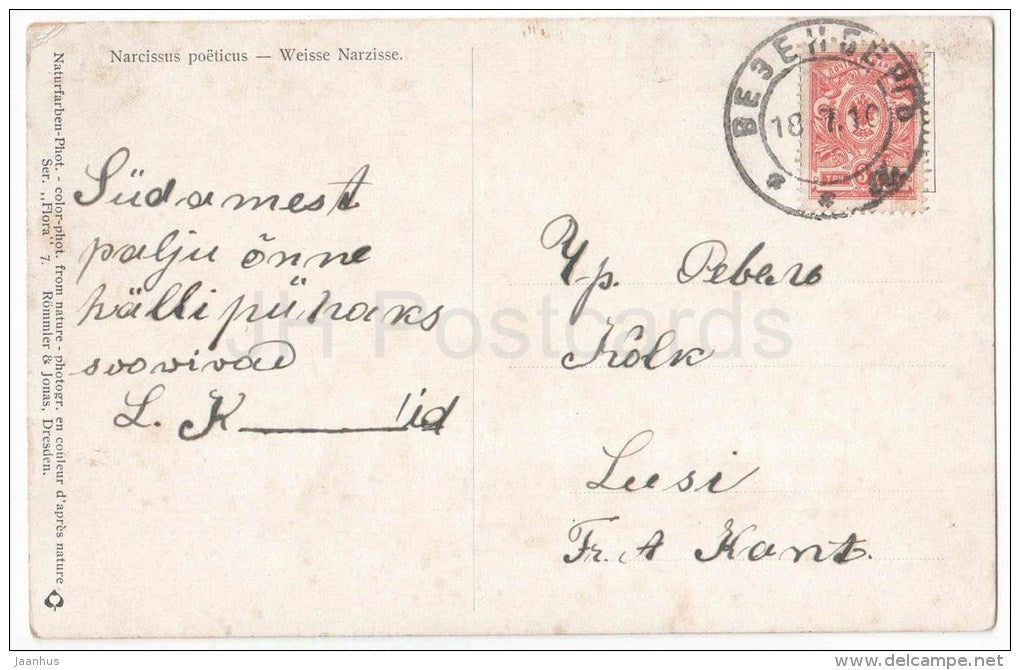 Narcissus poëticus — Weisse Narzisse.
Naturfarben-Phot. - color-phot. from nature - photogr. en couleur d'après nature
Ser. „Flora" 7. Römmler & Jonas, Dresden.
Südamest
palju õnne
hällipühaks
soovivad
L. K______'id
ВЕЗЕНБЕРГЪ
18 7.10
ТРИ
Ур. Ревель
Kolk
Lusi
Fr. A Kant.
JH Postcards
jaanhus
delcampe.net